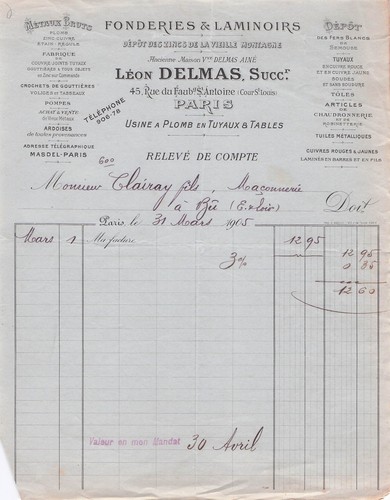 MÉTAUX BRUTS
PLOMB
ZINC CUIVRE
ÉTAIN RÉGULE
FABRIQUE
DE
COUVRE JOINTS TUYAUX
GOUTTIÈRES & TOUS OBJETS
en Zinc sur Commande
CROCHETS DE GOUTTIÈRES
VOLIGES ET TASSEAUX
POMPES
ACHAT & VENTE
de Vieux Métaux
ARDOISES
de toutes provenances
ADRESSE TÉLÉGRAPHIQUE
MASDEL-PARIS
FONDERIES & LAMINOIRS
DÉPÔT DES ZINCS DE LA VIEILLE MONTAGNE
Ancienne Maison Vve DELMAS AINÉ
LÉON DELMAS, SUCCR
45, Rue du Faubg St Antoine (Cour St Louis)
PARIS
USINE A PLOMB EN TUYAUX & TABLES
TÉLÉPHONE
906-78
DÉPÔT
DES FERS BLANCS
DE
TUYAUX
EN CUIVRE ROUGE
ET EN CUIVRE JAUNE
SOUDÉS
ET SANS SOUDURE
TÔLES
ARTICLES
DE
CHAUDRONNERIE
ET DE
ROBINETTERIE
TUILES METALLIQUES
CUIVRES ROUGES & JAUNES
LAMINÉS EN BARRES ET EN FILS
RELEVÉ DE COMPTE
600
Monsieur Clairay fils, Maçonnerie
à Bû (E & Loir) Doit
Paris, le 31 Mars 1905
Mars 1 Ma facture 12 95
3% 12 95
0 35
12 60
Valeur en mon Mandat 30 Avril